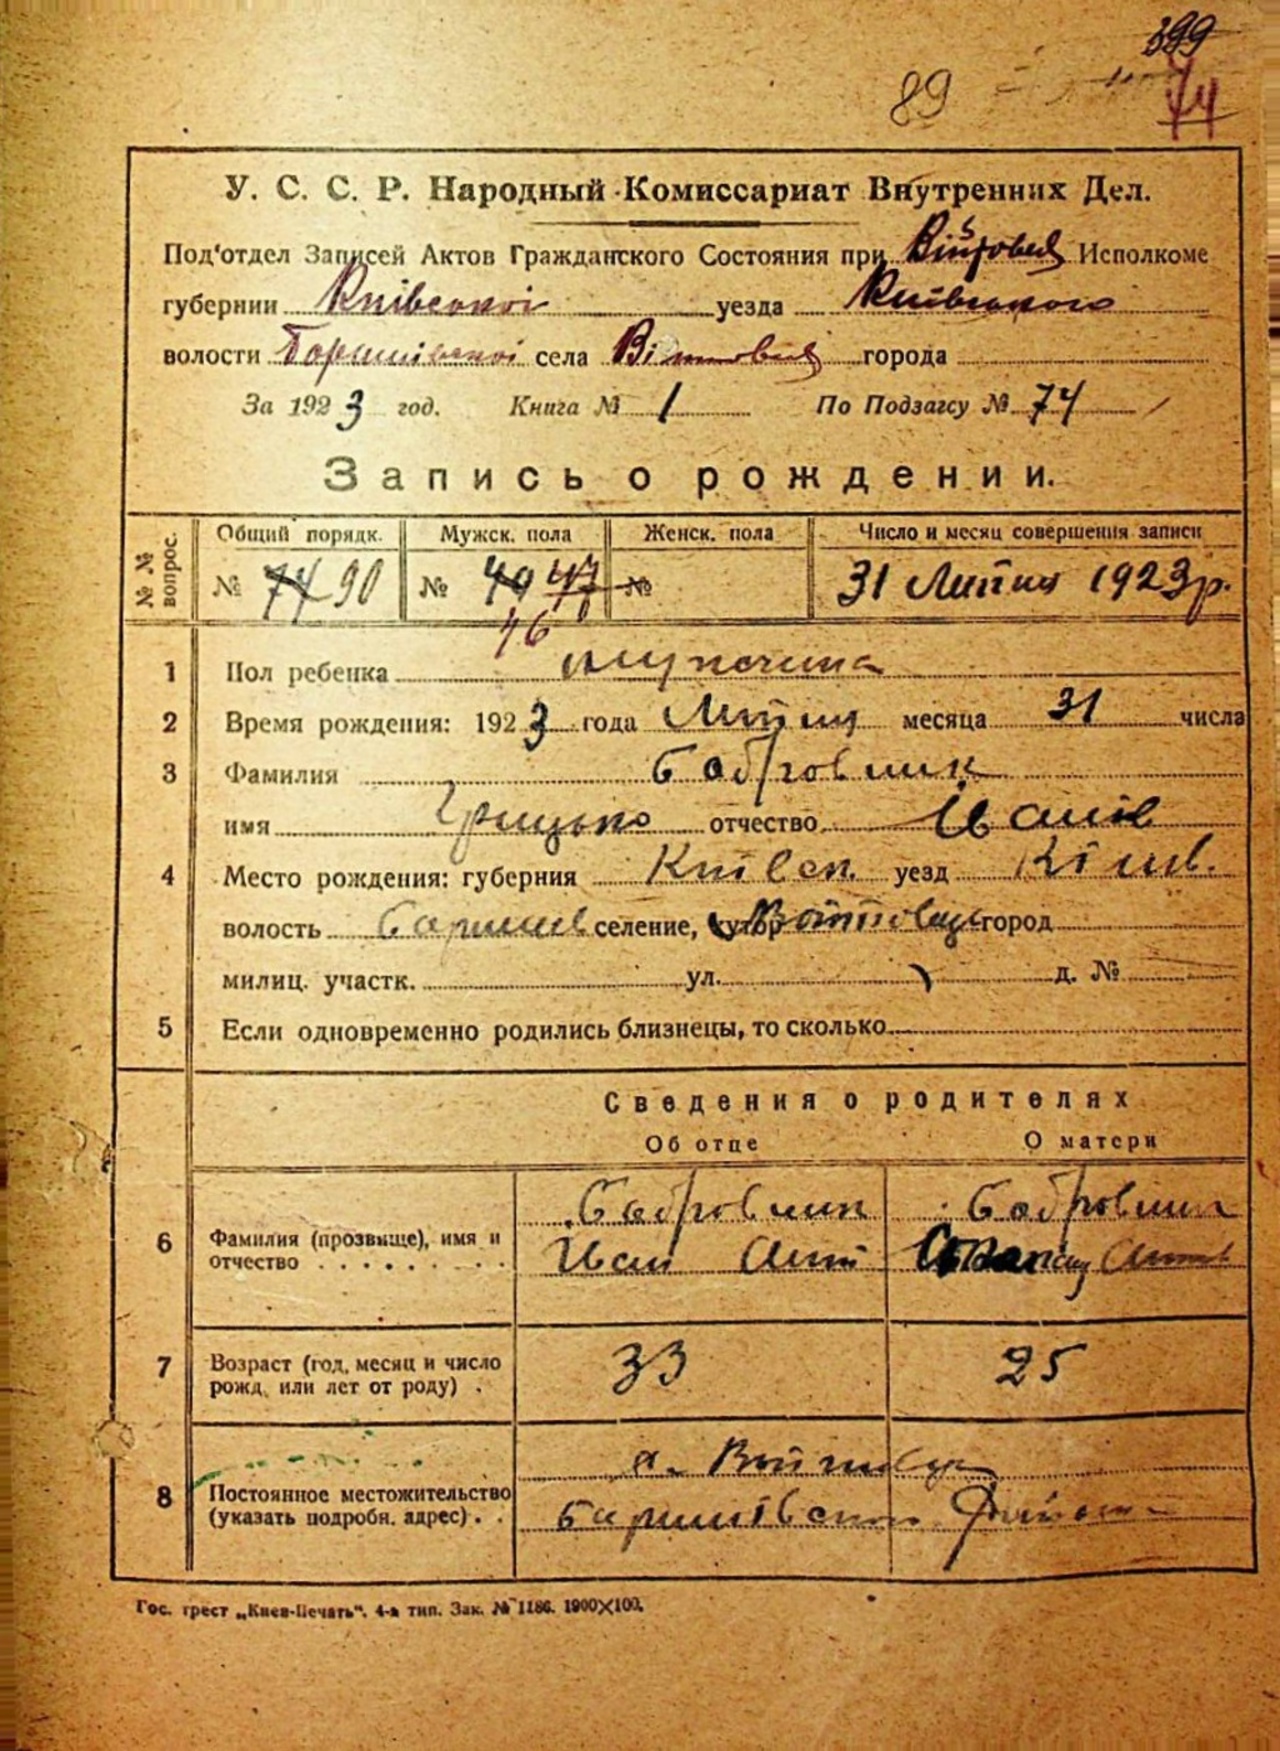 399
89
74
У. С. С. Р. Народный Комиссариат Внутренних Дел.
Под'отдел Записей Актов Гражданского Состояния при Исполкоме
губернии Київської уезда Київського
волости села города
За 1923 год. Книга № 1 По Подзагсу № 74
Запись о рождении.
№ № вопрос. Общий порядк. Мужск. пола Женск. пола Число и месяц совершения записи
№ 74 90 № 49 47 № 31 Липня 1923 р.
46
1 Пол ребенка мужчина
2 Время рождения: 1923 года Липня месяца 31 числа
3 Фамилия Бобровник
имя Грицько отчество Иванів
4 Место рождения: губерния Київськ. уезд Київ.
волость Баришів селение, хутор город
милиц. участк. ул. д. №
5 Если одновременно родились близнецы, то сколько
Сведения о родителях
Об отце О матери
6 Фамилия (прозвище), имя и отчество Бобровник Бобровник
Иван Ант
7 Возраст (год, месяц и число рожд. или лет от роду) 33 25
8 Постоянное местожительство (указать подробн. адрес)
с. Войтовці
Баришівського Району
Гос. трест „Киев-Печать“. 4-я тип. Зак. № 1186. 1900×100.